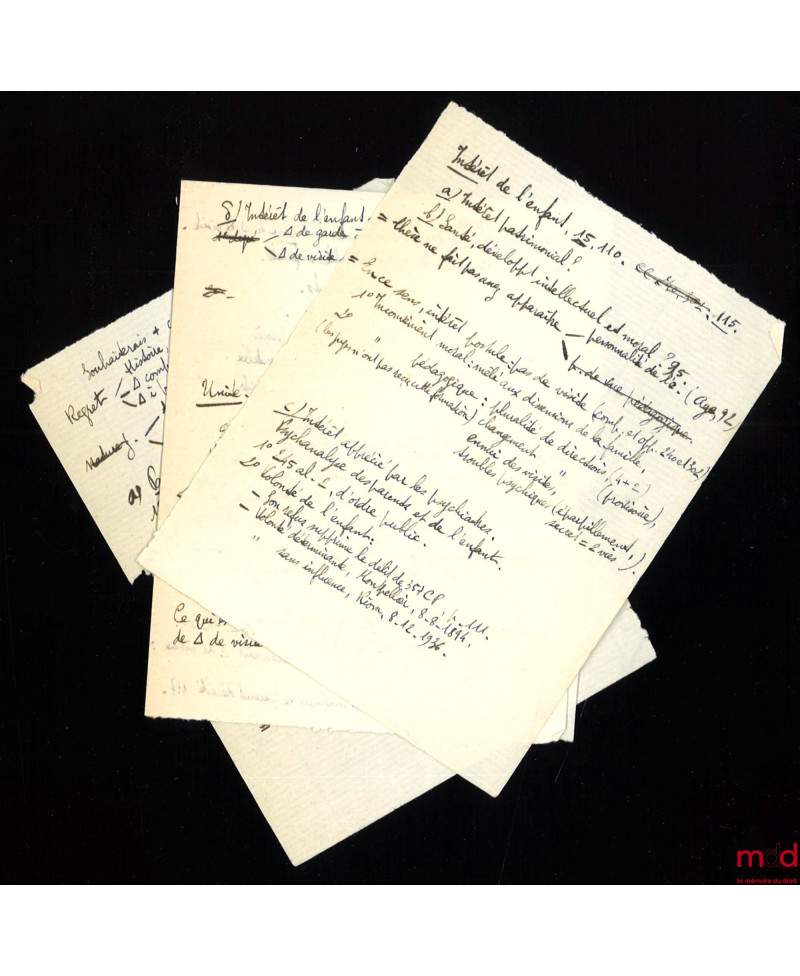 Intérêt de l'enfant, 15, 110. 115.
a) Intérêt patrimonial?
b) Santé, développt intellectuel et moral? 95
= thèse ne fait pas assez apparaître personnalité de (age, 92
= En ce sens, intérêt postule pas de visite (comp. et opp. 240 et 302)
1o Inconvénient moral: mêlé aux dissensions de la famille,
2o " pédagogique: pluralité de directions, (4+2)
(les juges n'ont pas reçu cette formation) changement " (provisoire),
ennui des visites,
troubles psychiques (éparpillement,
secret = 2 vies).
c) Intérêt apprécié par les psychiatres.
Psychanalyse des parents et de l'enfant.
1o 245 al. 2, d'ordre public.
2o Volonté de l'enfant.
- Son refus supprime le délit de 357 CP, 111.
- Volonté déterminante, Montpellier, 8-8-1894.
" sans influence, Riom, 8-12-1936.
δ) Intérêt de l'enfant.
Δ de garde
Δ de visite
Unité.
Ce qui
de Δ de visite
Souhaiterais +
Histoire,
Regret Δ comp
Δ i
a)
mdd
la mémoire du droit